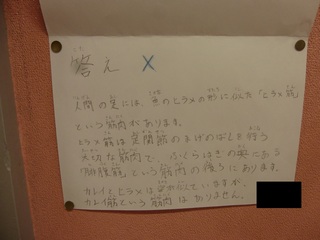 こた
答え ×
人間の足には、魚のヒラメの形に似た「ヒラメ筋」
という筋肉があります。
ヒラメ筋は足関節のまげのばしを
大切な筋肉で、ふくらはぎの奥にある
「腓腹筋」という筋肉の後ろにあります。
カレイとヒラメは
カレイ筋という筋肉はありません。